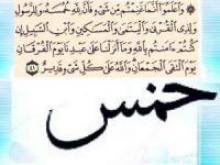 وَٱعْلَمُوٓا۟ أَنَّمَا غَنِمْتُم مِّن شَىْءٍ فَأَنَّ لِلَّهِ خُمُسَهُۥ وَلِلرَّسُولِ
وَلِذِى ٱلْقُرْبَىٰ وَٱلْيَتَـٰمَىٰ وَٱلْمَسَـٰكِينِ وَٱبْنِ ٱلسَّبِيلِ إِن
كُنتُمْ ءَامَنتُم بِٱللَّهِ وَمَآ أَنزَلْنَا عَلَىٰ عَبْدِنَا يَوْمَ ٱلْفُرْقَانِ
يَوْمَ ٱلْتَقَى ٱلْجَمْعَانِ وَٱللَّهُ عَلَىٰ كُلِّ شَىْءٍ قَدِيرٌ ٤١
خمس